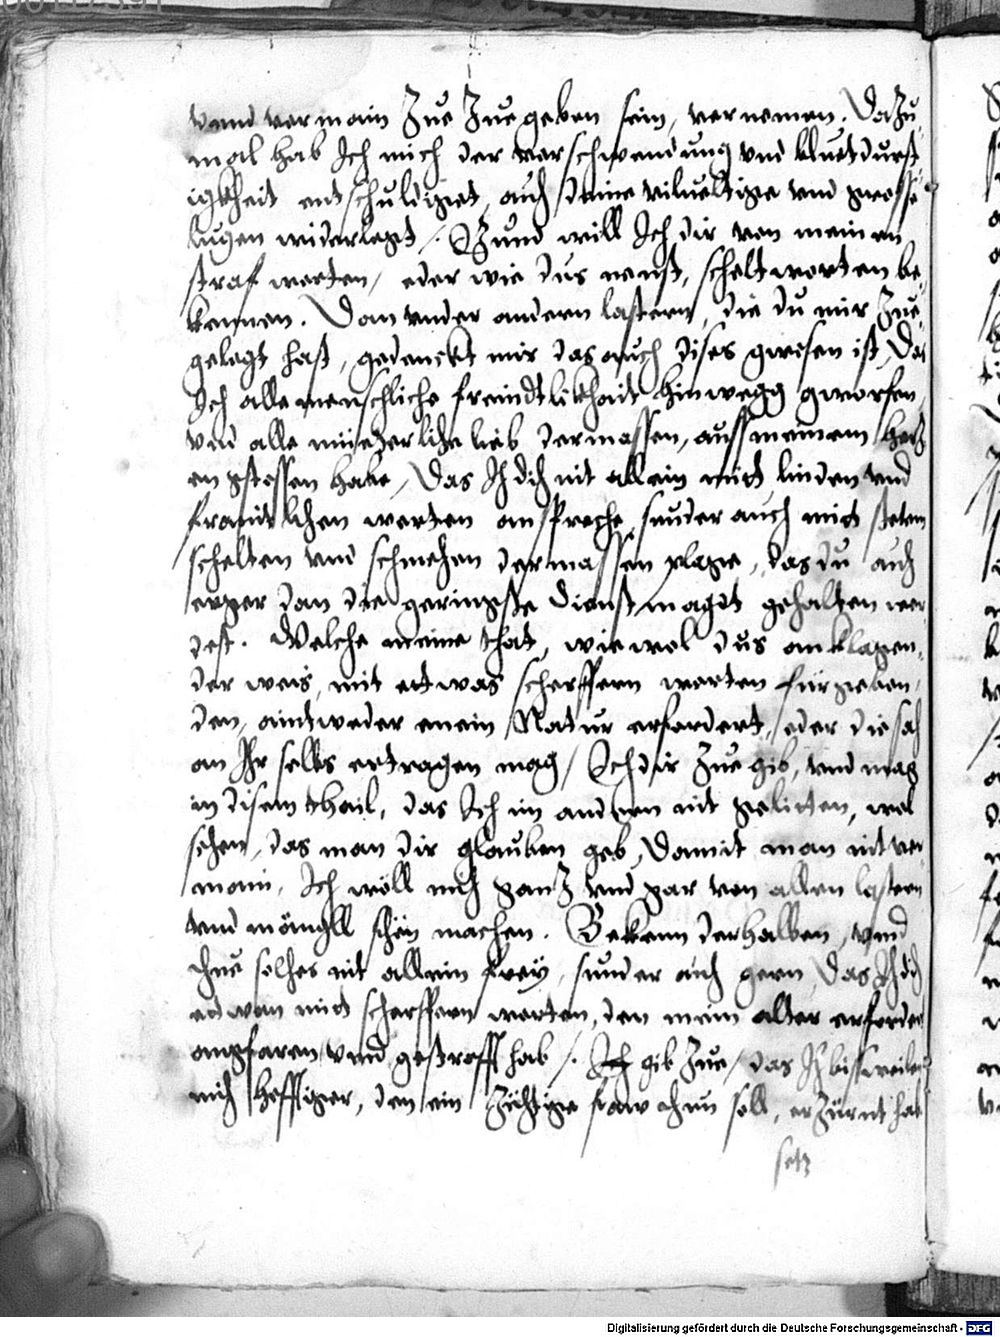 vnnd vermain Zue Zue geben sein, vernemen. DaZu
mal hab Ich mich der verschwendung vnd bluetdurst
igkheit entschuldiget, auch deine viluältige vnd grosse
lugen widerlegt /. YZund will Ich dir von meinen
straf worten, oder wie dus nenst, scheltworten be,
kennen. Dan vnder andern lastern, die du mir Zue,
gelegt hast, gedenckt mir das auch dises gwesen ist, Das
Ich alle menschliche freindtlikhait hinwegg gworfen
vnd alle müeterliche lieb dermassen, auss meinem herZ
en gstossen habe, Das Ich dich nit allein mit linden vnd
freintlichen worten anspreche, sunder auch mit stetem
schelten vnd schmehen dermassen plage, das du auch
erger dan die geringste dienst magdt gehalten wer
dest. Welche meine that, wiewol dus anklagen,
der weis, mit etwas scherffern worten fürgeben,
den, aintweder mein Natur erfordert, oder die sach
an Ihr selbs ertragen mag / Ich dir Zue gib, vnd mag
in disem thail, das Ich im andern nit gelitten, wol
sehen, das man dir glauben geb, Damit man nit ver
main, Ich wöll mich ganZ vnd gar von allen lastern
vnd mängll schön machen. Bekenn derhalben, vnnd
thue solhes nit allein frey, sunder auch gern, das Ich dich
etwan mit scherffern worten, den mein alter erfordert
angfaren vnnd gestrafft hab /. Ich gib Zue, das Ich bissweilen
mich hefftiger, den ein Züchtige fraw thun soll, erZürnt hab
setz
Digitalisierung gefördert durch die Deutsche Forschungsgemeinschaft - DFG